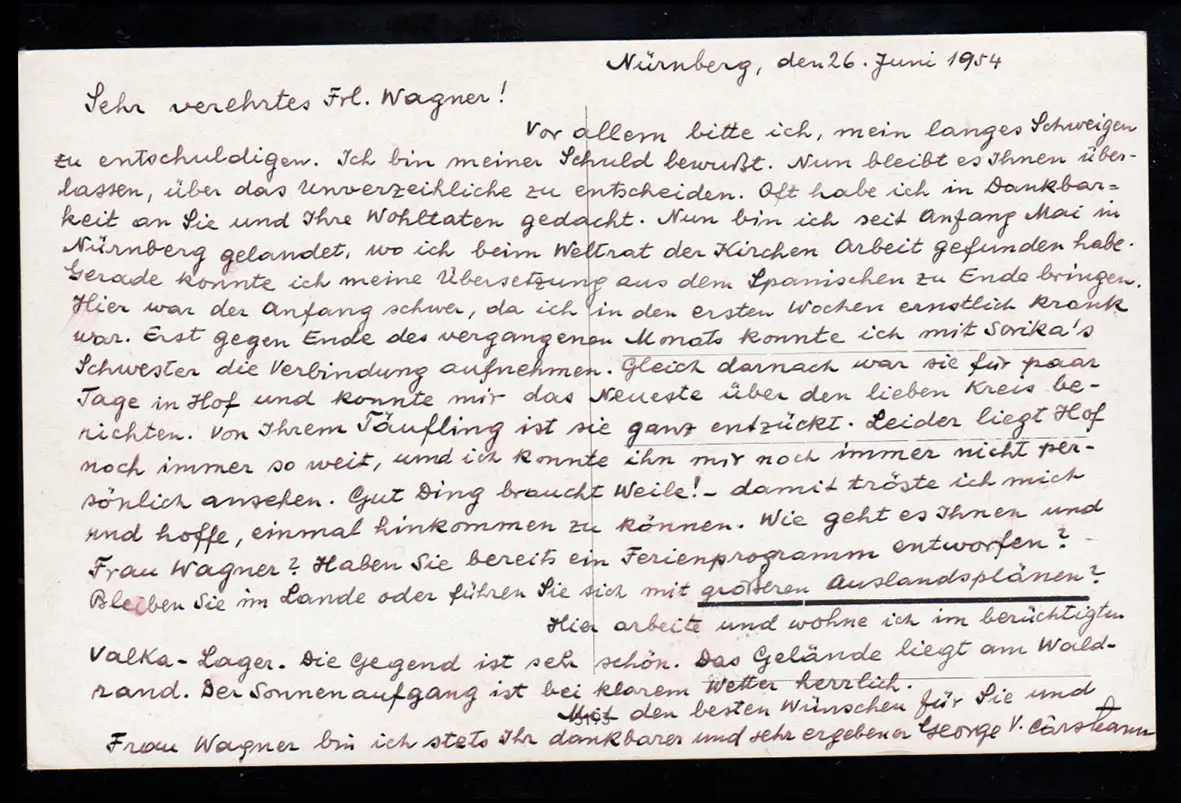 Nürnberg, den 26. Juni 1954
Sehr verehrtes Frl. Wagner!
Vor allem bitte ich, mein langes Schweigen
zu entschuldigen. Ich bin meiner Schuld bewußt. Nun bleibt es Ihnen über-
lassen, über das Unverzeihliche zu entscheiden. Oft habe ich in Dankbar=
keit an Sie und Ihre Wohltaten gedacht. Nun bin ich seit Anfang Mai in
Nürnberg gelandet, wo ich beim Weltrat der Kirchen Arbeit gefunden habe.
Gerade konnte ich meine Übersetzung aus dem Spanischen zu Ende bringen.
Hier war der Anfang schwer, da ich in den ersten Wochen ernstlich krank
war. Erst gegen Ende des vergangenen Monats konnte ich mit Sorika's
Schwester die Verbindung aufnehmen. Gleich darnach war sie für paar
Tage in Hof und konnte mir das Neueste über den lieben Kreis be-
richten. Von Ihrem Täufling ist sie ganz entzückt. Leider liegt Hof
noch immer so weit, und ich konnte ihn mir noch immer nicht per-
sönlich ansehen. Gut Ding braucht Weile! - damit tröste ich mich
und hoffe, einmal hinkommen zu können. Wie geht es Ihnen und
Frau Wagner? Haben Sie bereits ein Ferienprogramm entworfen?
Bleiben Sie im Lande oder führen Sie sich mit größeren Auslandsplänen?
Hier arbeite und wohne ich im berüchtigten
Valka-Lager. Die Gegend ist sehr schön. Das Gelände liegt am Wald-
rand. Der Sonnenaufgang ist bei klarem Wetter herrlich.
Mit den besten Wünschen für Sie und
Frau Wagner bin ich stets Ihr dankbarer und sehr ergebener George V.